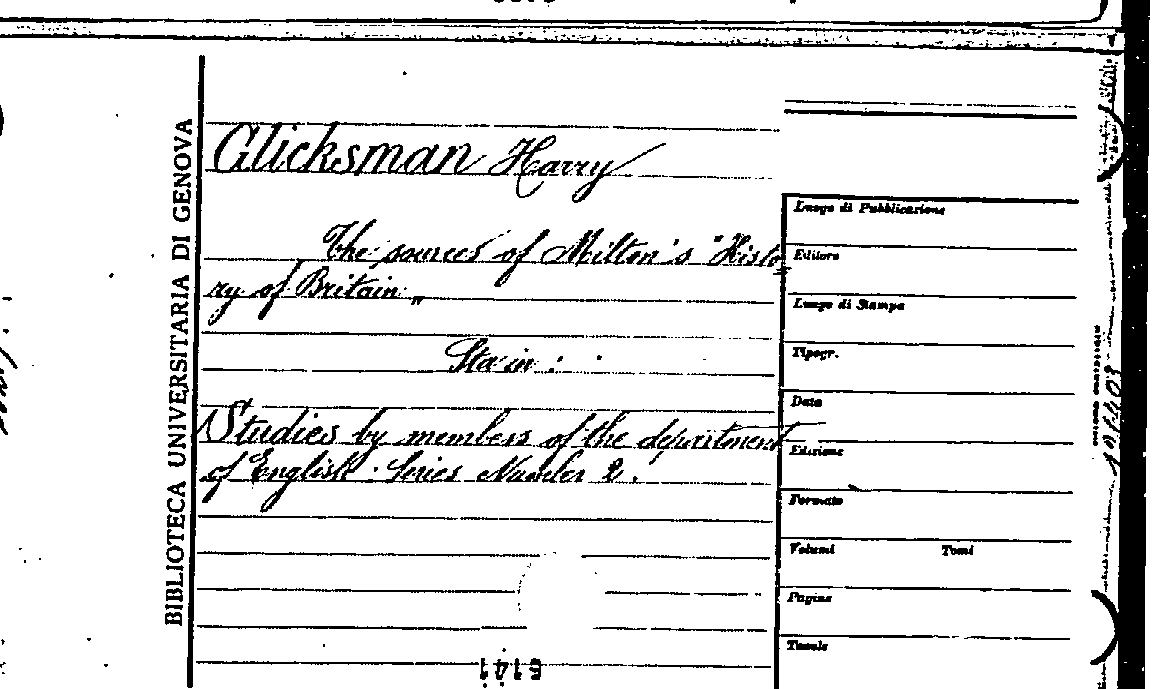 BIBLIOTECA UNIVERSITARIA DI GENOVA
Glicksman Harry
The sources of Milton's "Histo
ry of Britain„
Sta in :
Studies by members of the department
of English. Series Number 2.
Luogo di Pubblicazione
Editore
Luogo di Stampa
Tipogr.
Data
Edizione
Formato
Volumi Tomi
Pagine
Tavole